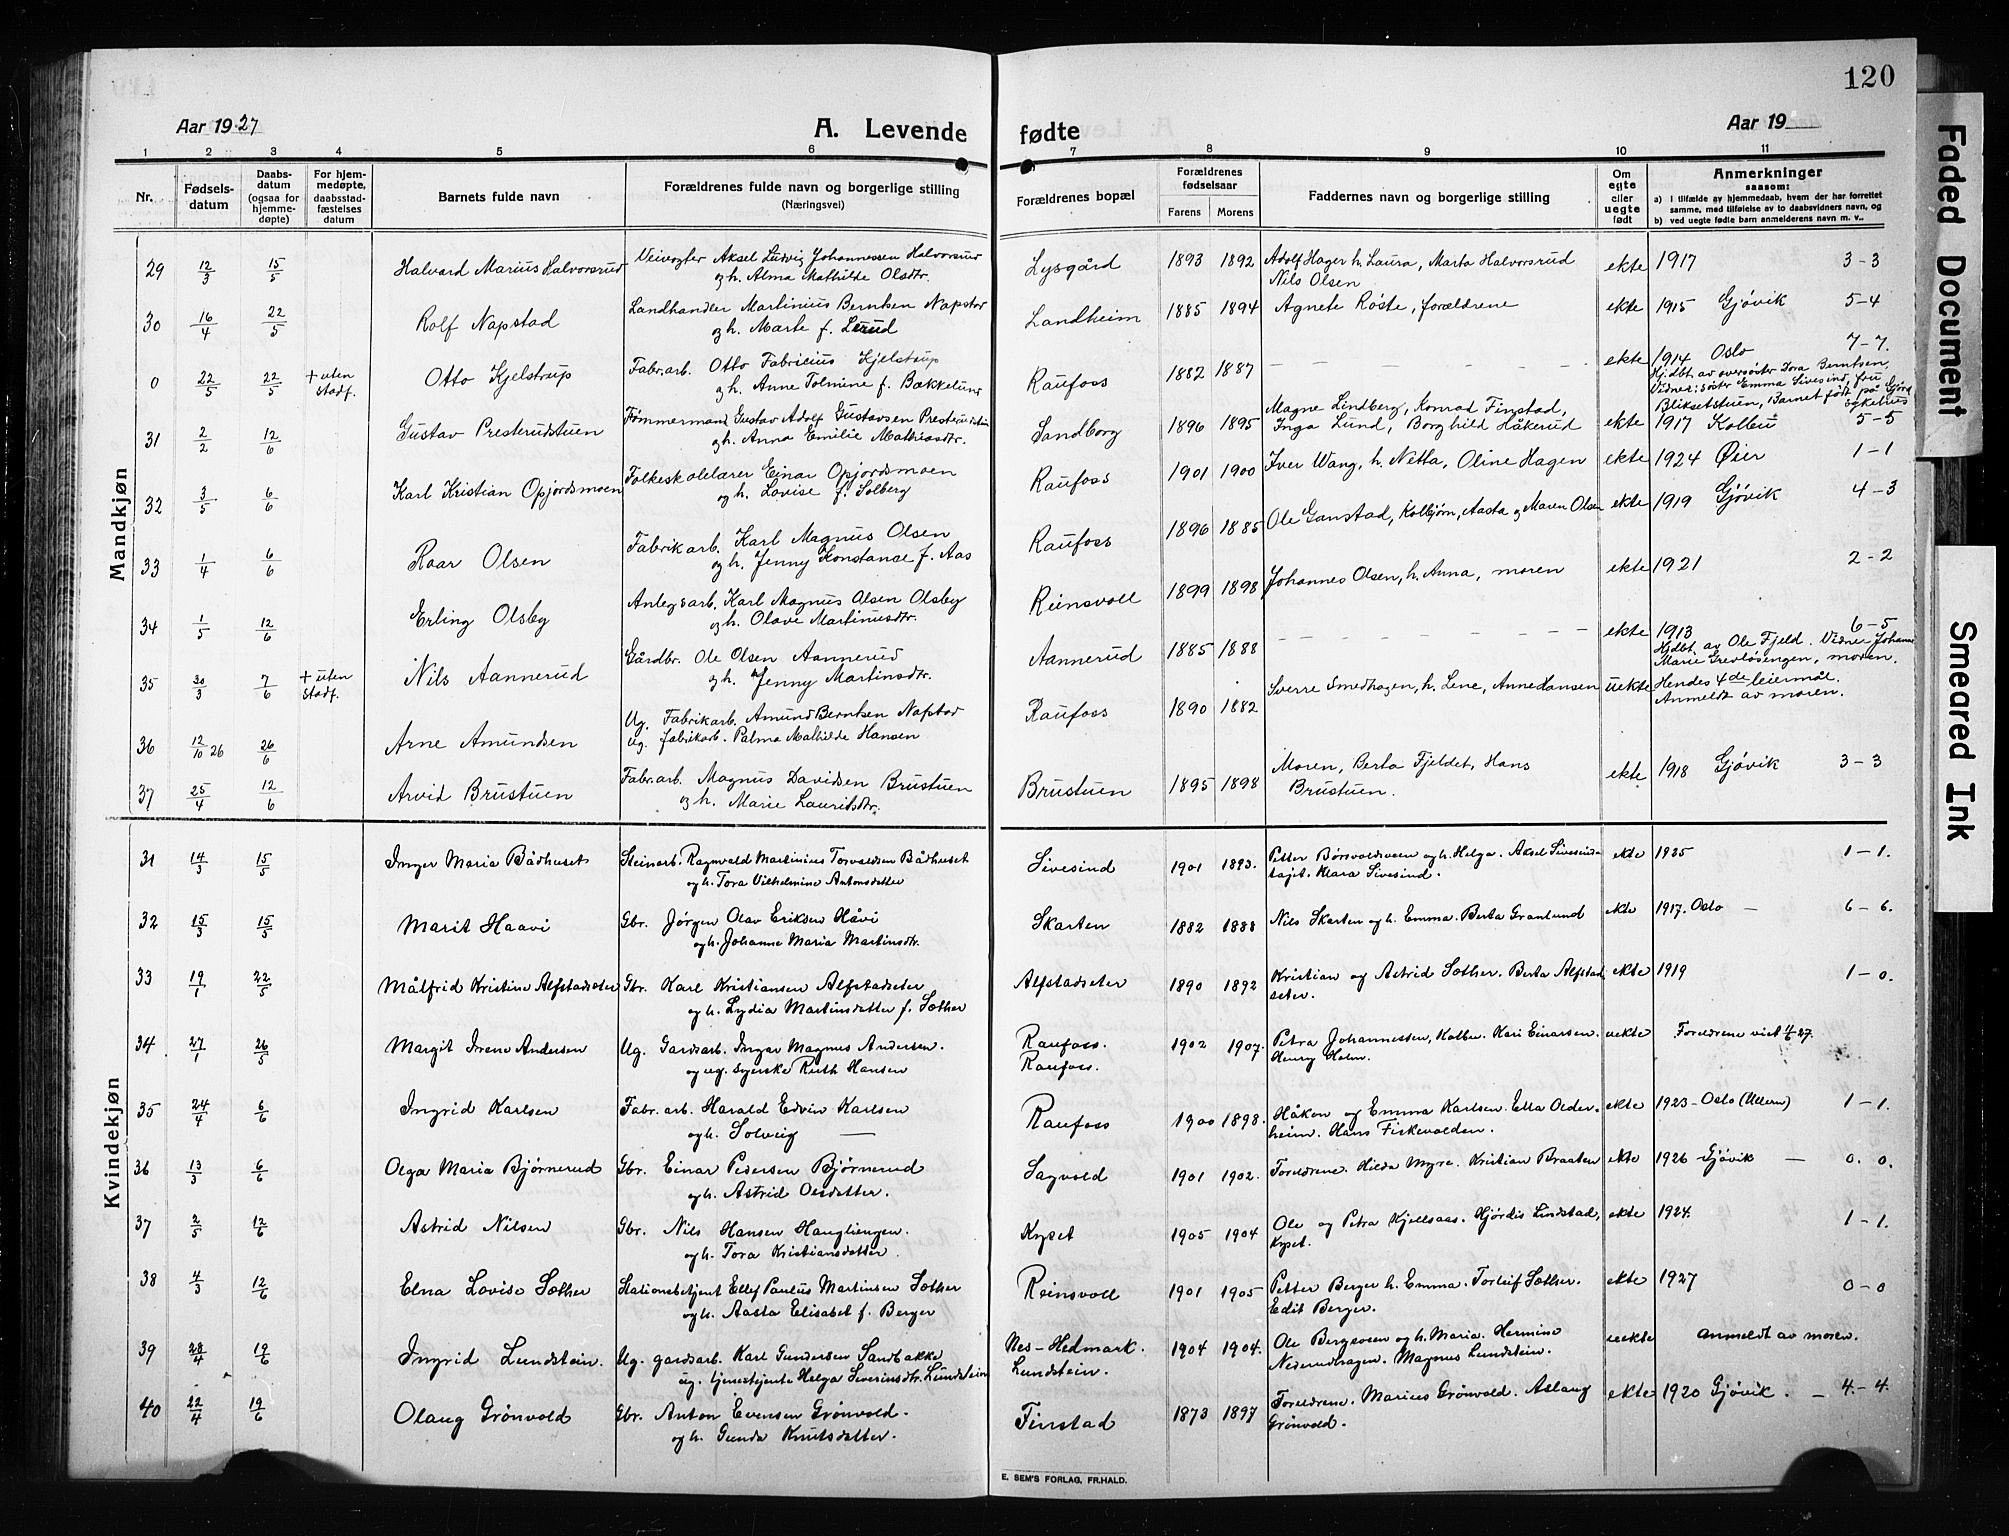 120
Aar 1927
A. Levende fødte
Aar 19
1 2 3 4 5 6 7 8 9 10 11
Nr.
Fødsels-
datum
Daabs-
datum
(ogsaa for
hjemme-
døpte)
For hjem-
medøpte,
daabsstad-
fæstelses
datum
Barnets fulde navn
Forældrenes fulde navn og borgerlige stilling
(Næringsvei)
Forældrenes bopæl
Forældrenes
fødselsaar
Farens Morens
Faddernes navn og borgerlige stilling
Om
egte
eller
uegte
født
Anmerkninger
saasom:
a) i tilfælde av hjemmedaab, hvem der har forrettet
samme, med tilføielse av to daabsvidners navn, og
b) ved uegte fødte barn anmelderens navn m. v..
Mandkjøn
29 12/3 15/5 Halvard Marius Halvorsrud Veivogter Aksel Ludvig Johannessen Halvorsrud Lysgård 1893 1892 Adolf Hager h. Laura, Marta Halvorsrud ekte 1917 3-3
og h. Alma Mathilde Olsdtr. Nils Olsen
30 16/4 22/5 Rolf Napstad Landhandler Martinius Berntsen Napstad Landheim 1885 1894 Agnete Røste, forældrene ekte 1915 Gjøvik 5-4
og h. Marte f. Lerud
0 22/5 22/5 + uten stadf. Otto Kjelstrup Fabr.arb. Otto Fabricius Kjelstrup Raufoss 1882 1887 ekte 1914 Oslo 7-7.
og h. Anne Tolmine f. Bækkelund Hj.dbt. av oversøster Dora Berntsen,
Vidner: søster Emma Sivesind, fru
Bliksetstuen, Barnet født på Gjøv.
sykehus
31 2/2 12/6 Gustav Presterudstuen Tømmermand Gustav Adolf Gustavsen Presterudstuen Sandborg 1896 1895 Magne Lindberg, Konrad Finstad, ekte 1917 Kolbu 5-5
og h. Anna Emilie Mathiasdtr. Inga Lund, Borghild Håkerud
32 3/5 6/6 Karl Kristian Opjordsmoen Folkeskolelærer Einar Opjordsmoen Raufoss 1901 1900 Iver Wang, h. Netta, Oline Hagen ekte 1924 Øier 1-1
og h. Lovise f. Solberg
33 1/4 6/6 Roar Olsen Fabrikarb. Karl Magnus Olsen Raufoss 1896 1885 Ole Ganstad, Kolbjørn, Aasta og Maren Olsen ekte 1919 Gjøvik 4-3
og h. Jenny Konstanse f. Aas
34 1/5 12/6 Erling Olsby Anlegsarb. Karl Magnus Olsen Olsby Reinsvoll 1899 1898 Johannes Olsen, h. Anna, moren ekte 1921 2-2
og h. Olave Martinusdtr.
35 30/3 7/6 + uten stadf. Nils Aannerud Gårdbr. Ole Olsen Aannerud Aannerud 1885 1888 ekte 1913 6-5
og h. Jenny Martinsdtr. Hjdbt. av Ole Fjeld. Vidner Johanne
Marie Grevløsengen, moren.
36 12/10 26 26/6 Arne Amundsen Ug. Fabrikarb. Amund Berntsen Napstad Raufoss 1890 1882 Sverre Smedhagen, h. Lene, Anne Hansen uekte Hendes 4de leiermål.
ug. fabrikarb. Palma Mathilde Hansen Anmeldt av moren.
37 25/4 12/6 Arvid Brustuen Fabr.arb. Magnus Davidsen Brustuen Brustuen 1895 1898 Moren, Berta Fjeldet, Hans ekte 1918 Gjøvik 3-3
og h. Marie Lauritsdtr. Brustuen.
Kvindekjøn
31 14/3 15/5 Inger Maria Bådhuset Steinarb. Ragnvald Martinius Torvaldsen Bådhuset Sivesind 1901 1893. Petter Børsvoldsveen og h. Helga. Aksel Sivesind- ekte 1925 1-1.
og h. Tora Vilhelmine Antonsdatter tajet. Klara Sivesind.
32 15/3 15/5 Marit Haavi Gbr. Jørgen Olav Eriksen Håvi Skarten 1882 1888 Nils Skarten og h. Emma. Berta Granlund ekte 1917. Oslo — 6-6.
og h. Johanne Maria Martinsdtr.
33 19/1 22/5 Målfrid Kristine Alfstadseter Gbr. Karl Kristiansen Alfstadseter Alfstadseter 1890 1892 Kristian og Astrid Sæther. Berta Alfstad ekte 1919 1-0.
og h. Lydia Martinsdatter f. Sæther seter.
34 27/1 26/5 Margit Irene Andersen Ug. Gardsarb. Ingar Magnus Andersen. Raufoss. 1902 1907. Petra Johannessen, Kolbu. Kari Einarsen. uekte Foreldrene viet 4/6 27.
og ug. syerske Ruth Hansen Raufoss. Henry Holm.
35 24/4 6/6 Ingrid Karlsen Fabr. arb. Harald Edvin Karlsen Raufoss 1900 1898. Håkon og Emma Karlsen. Ella Older- ekte 1923 - Oslo (Ullern) 1-1.
og h. Solveig — heim. Hans Fiskevolden.
36 13/3 6/6 Olga Maria Bjørnerud Gbr. Einar Pedersen Bjørnerud Sagvold 1901 1902. Foreldrene. Hilda Myre. Kristian Braaten ekte 1926 - Gjøvik — 0. 0.
og h. Astrid Olsdatter.
37 2/5 12/6 Astrid Nilsen Gbr. Nils Hansen Hauglingen. Kyset 1905 1904 Ole og Petra Kjellsaas. Hjørdis Lindstad, ekte 1924. 1-1.
og h. Tora Kristiansdatter. Kyset.
38 4/3 12/6 Elna Lovise Sæther Stationsbetjent Ellef Paulus Martinsen Sæther Reinsvoll 1901 1905 Petter Berger h. Emma. Torleif Sæther. ekte 1927 0-0
og h. Aasta Elisabet f. Berger Edit Berger.
39 28/4 19/6 Ingrid Lundstein. Ug. gardsarb. Karl Gundersen Sandbakke Nes-Hedmark. 1904 1904. Ole Bergsveen og h. Maria. Hermine uekte Anmeldt av moren.
ug. tjenestejente Helga Severinsdtr. Lundstein Lundstein. Nederudhagen. Magnus Lundstein.
40 22/4 19/6 Olaug Grønvold Gbr. Anton Evensen Grønvold. Finstad 1873 1897 Foreldrene. Marius Grønvold. Aslaug ekte 1920 Gjøvik. — 4-4.
og h. Gunda Knutsdatter. Grønvold.
E. SEM'S FORLAG, FR.HALD.
Faded Document
Smeared Ink